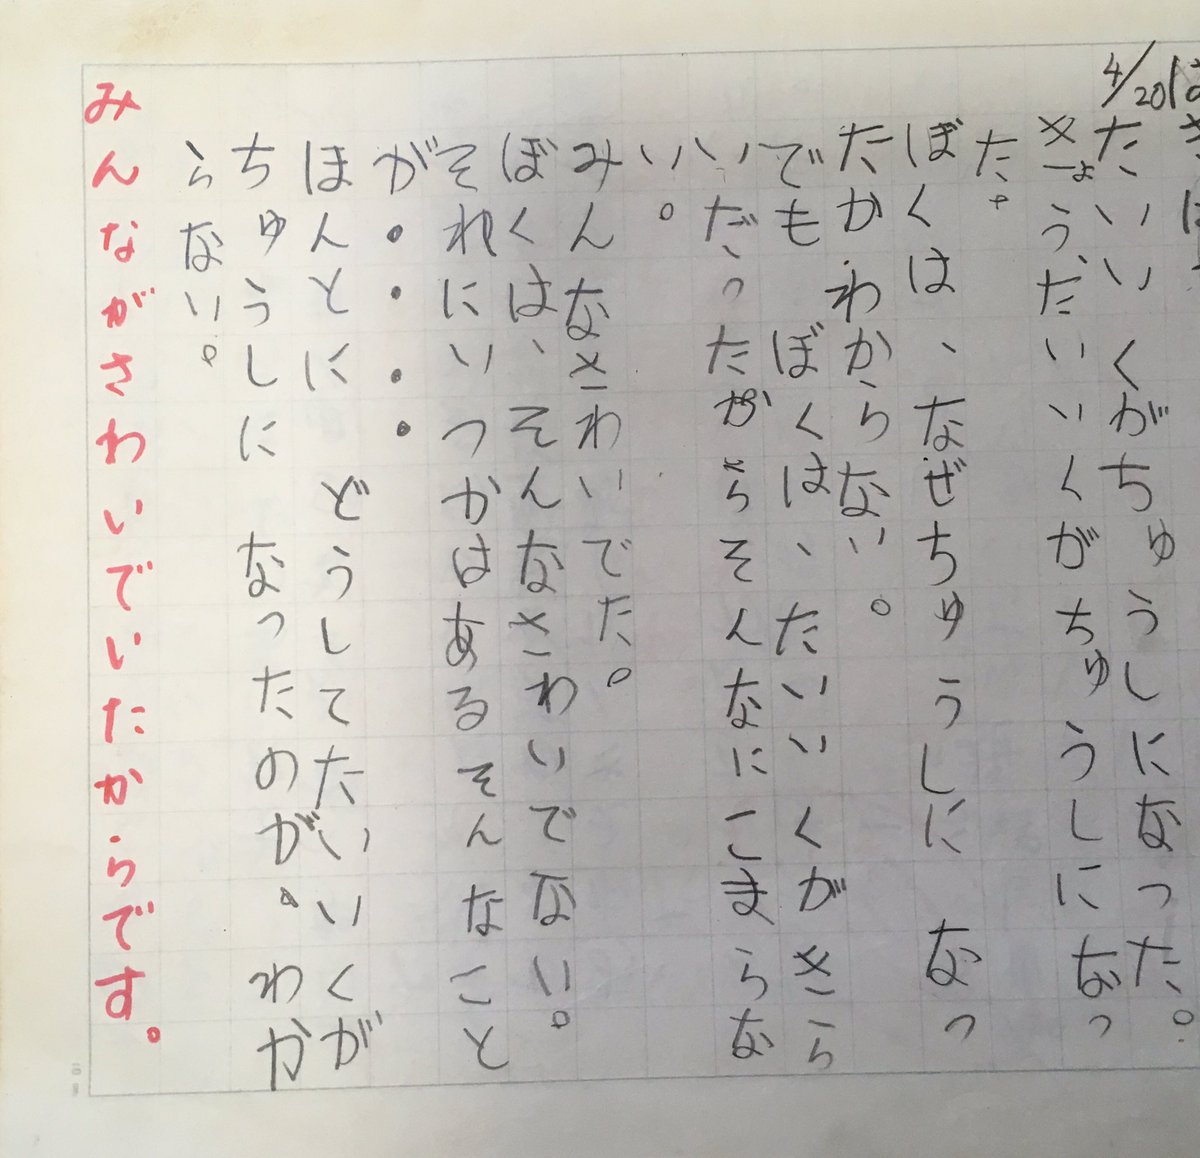 4/20
たいいくがちゅうしになった。
きょう、たいいくがちゅうしになっ
た。
ぼくは、なぜちゅうしになっ
たかわからない。
でもぼくは、たいいくがきら
いだったがらそんなにこまらな
い。
みんなさわいでた。
ぼくは、そんなさわいでない。
それにいつかはあるそんなこと
が・・・・
ほんとにどうしてたいいくが
ちゅうしになったのが。わか
らない。
みんながさわいでいたからです。